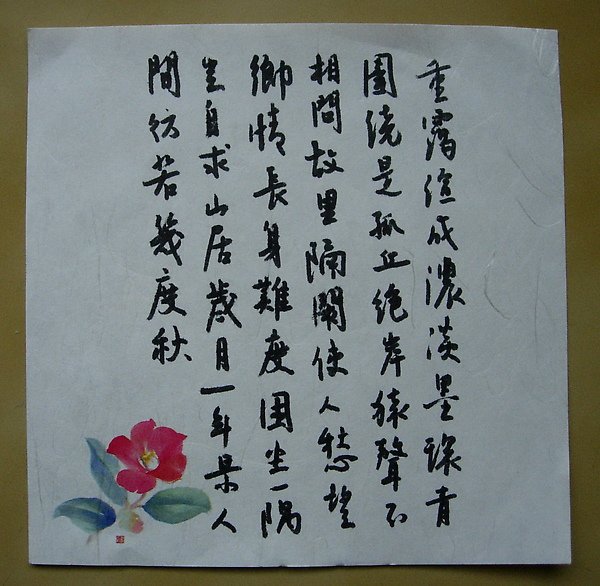 重靄渲成濃淡墨綠青
圍繞是孤丘絕岸猿聲不
相問故里隔闌使人愁望
鄉情長身難度困坐一隅
豈自求山居歲月一年景人
間彷若幾度秋